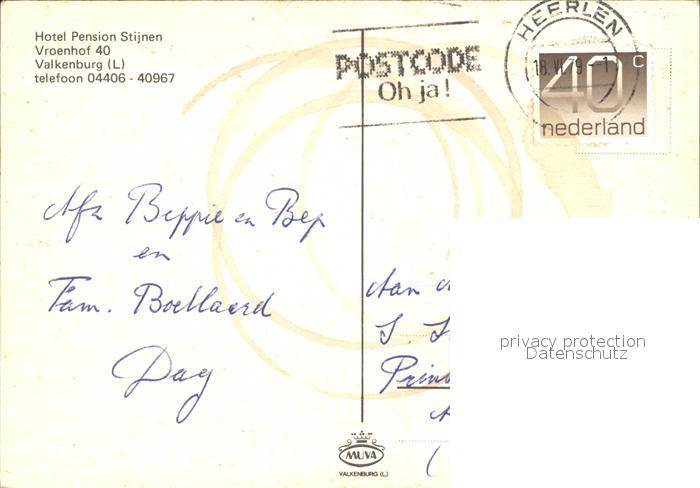 Hotel Pension Stijnen
Vroenhof 40
Valkenburg (L)
telefoon 04406 - 40967
POSTCODE
Oh ja!
HEERLEN
18.VI.79 - 1
40 C
nederland
Afz Beppie en Bep
en
Fam. Boellaard
Dag
Aan
S.
Prin
privacy protection
Datenschutz
MUVA
VALKENBURG (L.)